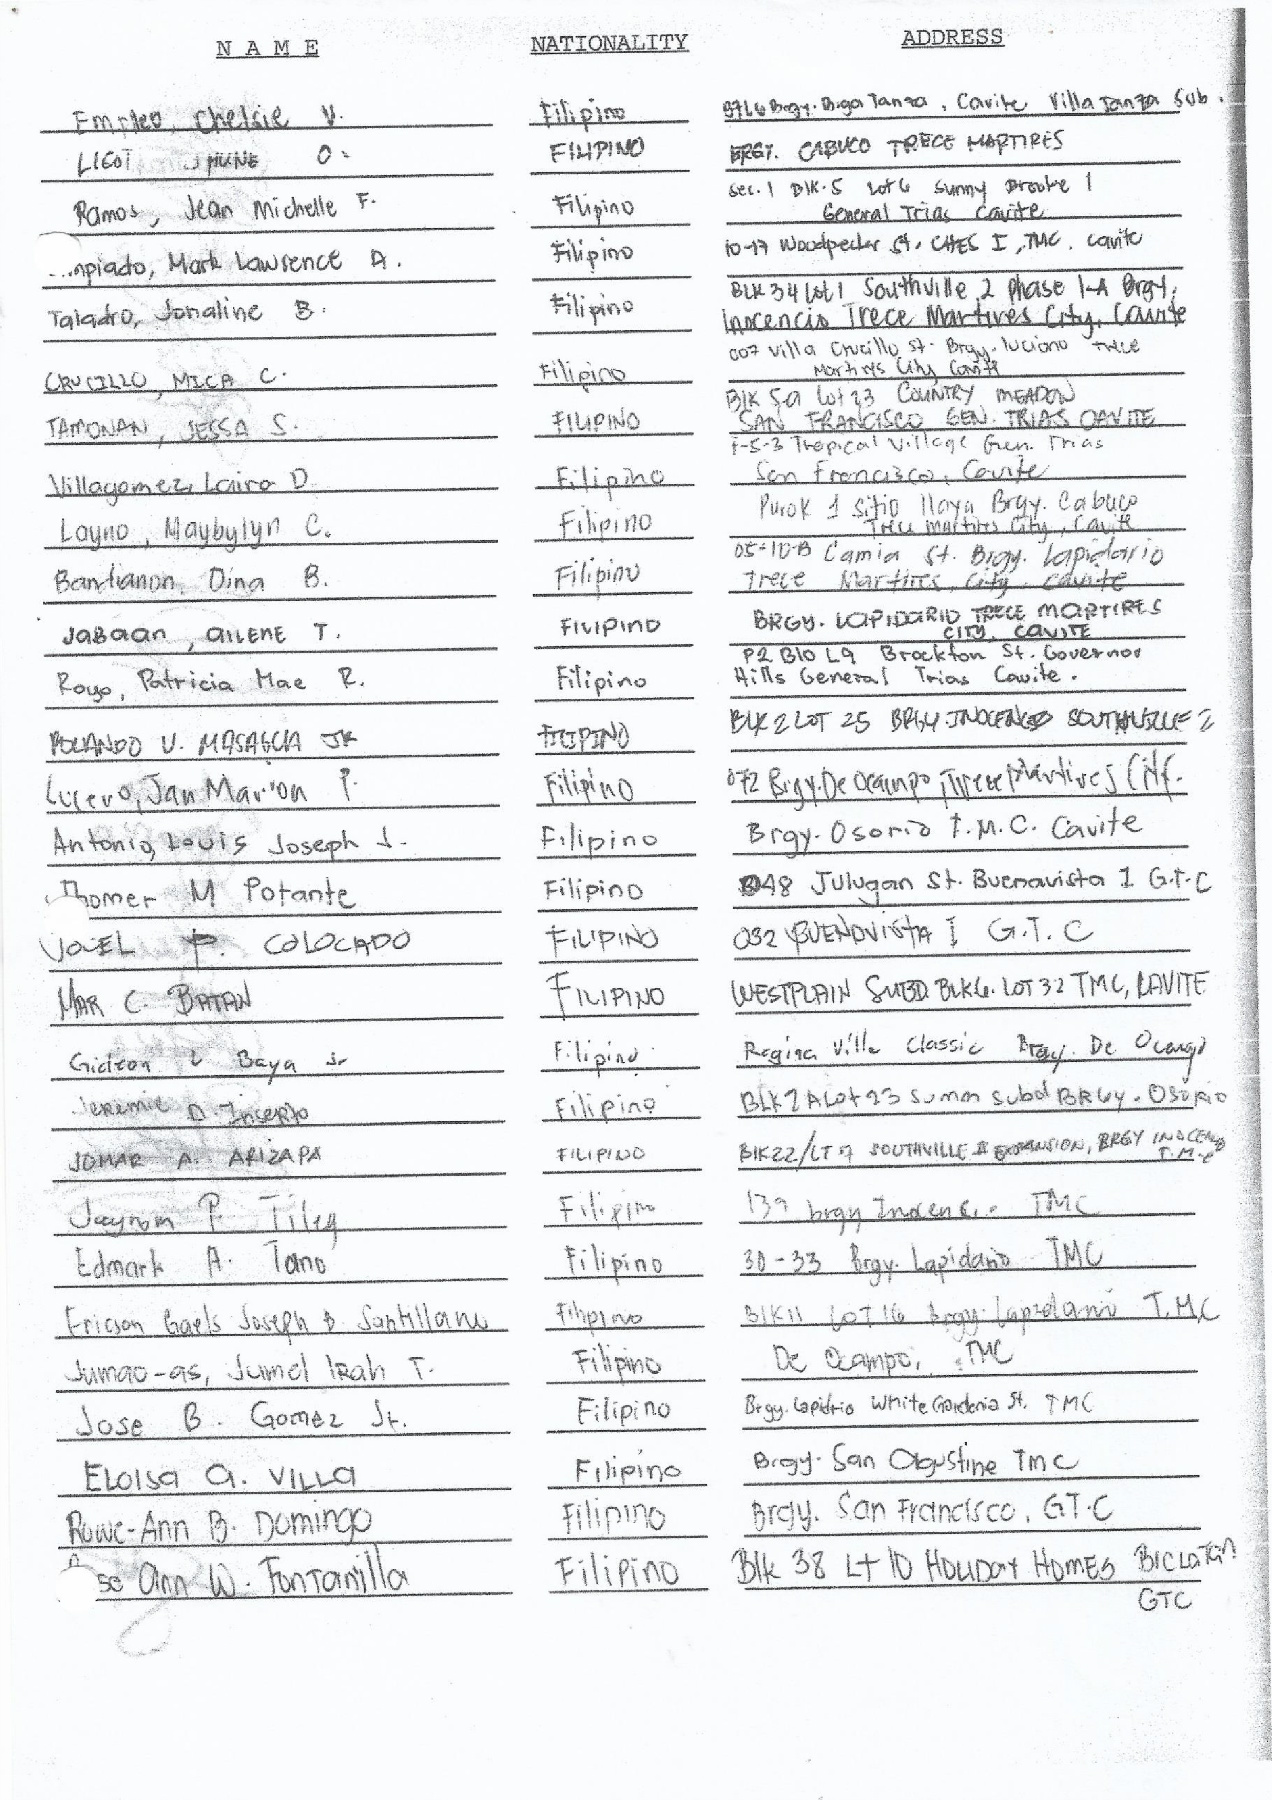 NAME NATIONALITY ADDRESS
Empleo, Chelsie V. Filipino B7L6 Brgy. Biga Tanza, Cavite Villa Tanza Sub.
LIGOT JHUNE O. FILIPINO BRGY. CABUCO TRECE MARTIRES
Ramos, Jean Michelle F. Filipino Sec. 1 Blk. 5 Lot 6 Sunny Brooke 1
General Trias Cavite
mpiado, Mark Lawrence A. Filipino 10-17 Woodpecker St. CHES I, TMC. Cavite
Taladro, Jonaline B. Filipino BLK 34 Lot 1 Southville 2 Phase 1-A Brgy.
Inocencio Trece Martires City, Cavite
CRUCILLO, MICA C. Filipino 007 Villa Crucillo St. Brgy. Luciano Trece
Martires City Cavite
TAMONAN, JESSA S. FILIPINO Blk 59 Lot 23 COUNTRY MEADOW
SAN FRANCISCO GEN. TRIAS CAVITE
Villagomez, Laira D. Filipino F-5-3 Tropical Village Gen. Trias
San Francisco, Cavite
Layno, Maybylyn C. Filipino Purok 1 Sitio Ilaya Brgy. Cabuco
Trece Martires City, Cavite
Bantianon, Dina B. Filipino 05-10-B Camia St. Brgy. Lapidario
Trece Martires City, Cavite
JABAAN, AILENE T. FILIPINO BRGY. LAPIDARIO TRECE MARTIRES
CITY, CAVITE
Royo, Patricia Mae R. Filipino P2 B10 L9 Brockton St. Governor
Hills General Trias Cavite.
ROLANDO V. MASAGCA JR FILIPINO BLK 2 LOT 25 BRGY. INOCENCIO SOUTHVILLE 2
Lucero, Jan Marion P. Filipino 072 Brgy. De Ocampo, Trece Martires City.
Antonio, Louis Joseph J. Filipino Brgy. Osorio T.M.C. Cavite
homer M Potante Filipino 048 Julugan St. Buenavista 1 G.T.C
JOUEL P. COLOCADO FILIPINO 032 BUENAVISTA I G.T.C
MAR C. BATAN FILIPINO WESTPLAIN SUBD. BLK 6. LOT 32 TMC, CAVITE
Gideon L Baya Jr Filipino Regina Ville Classic Brgy. De Ocampo
Jeremie D. Incepto Filipino BLK 2A Lot 23 Summ Subd BRGY. Osorio
JOMAR A. ARIZAPA FILIPINO BLK 22/LT 7 SOUTHVILLE II EXPANSION, BRGY INOCENCIO
T.M.C
Jayrom P. Tiley Filipino 139 brgy Inocencio TMC
Edmark A. Tano Filipino 30-33 Brgy. Lapidario TMC
Ericson Gaels Joseph D Santillan Filipino BLK 11 LOT 16 Brgy. Lapidario T.M.C
Jumao-as, Jumel Izah T. Filipino De Ocampo, TMC
Jose B. Gomez Jr. Filipino Brgy. Lapidrio White Gardenia St. TMC
ELOISA A. VILLA Filipino Brgy. San Agustine TMC
Rowe-Ann B. Domingo Filipino Brgy. San Francisco, GT.C
se Ann W. Fontanilla Filipino Blk 38 Lt 10 HOLIDAY HOMES BICLATAN
GTC